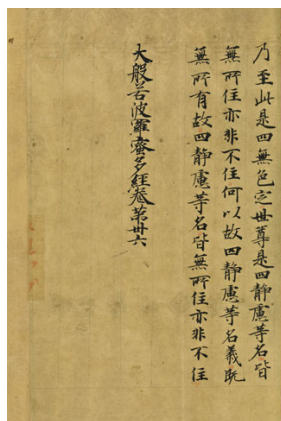 乃至此是四無色定世尊是四静慮等名皆
無所住亦非不住何以故四静慮等名義既
無所有故四静慮等名皆無所住亦非不住
大般若波羅蜜多經卷第卅六